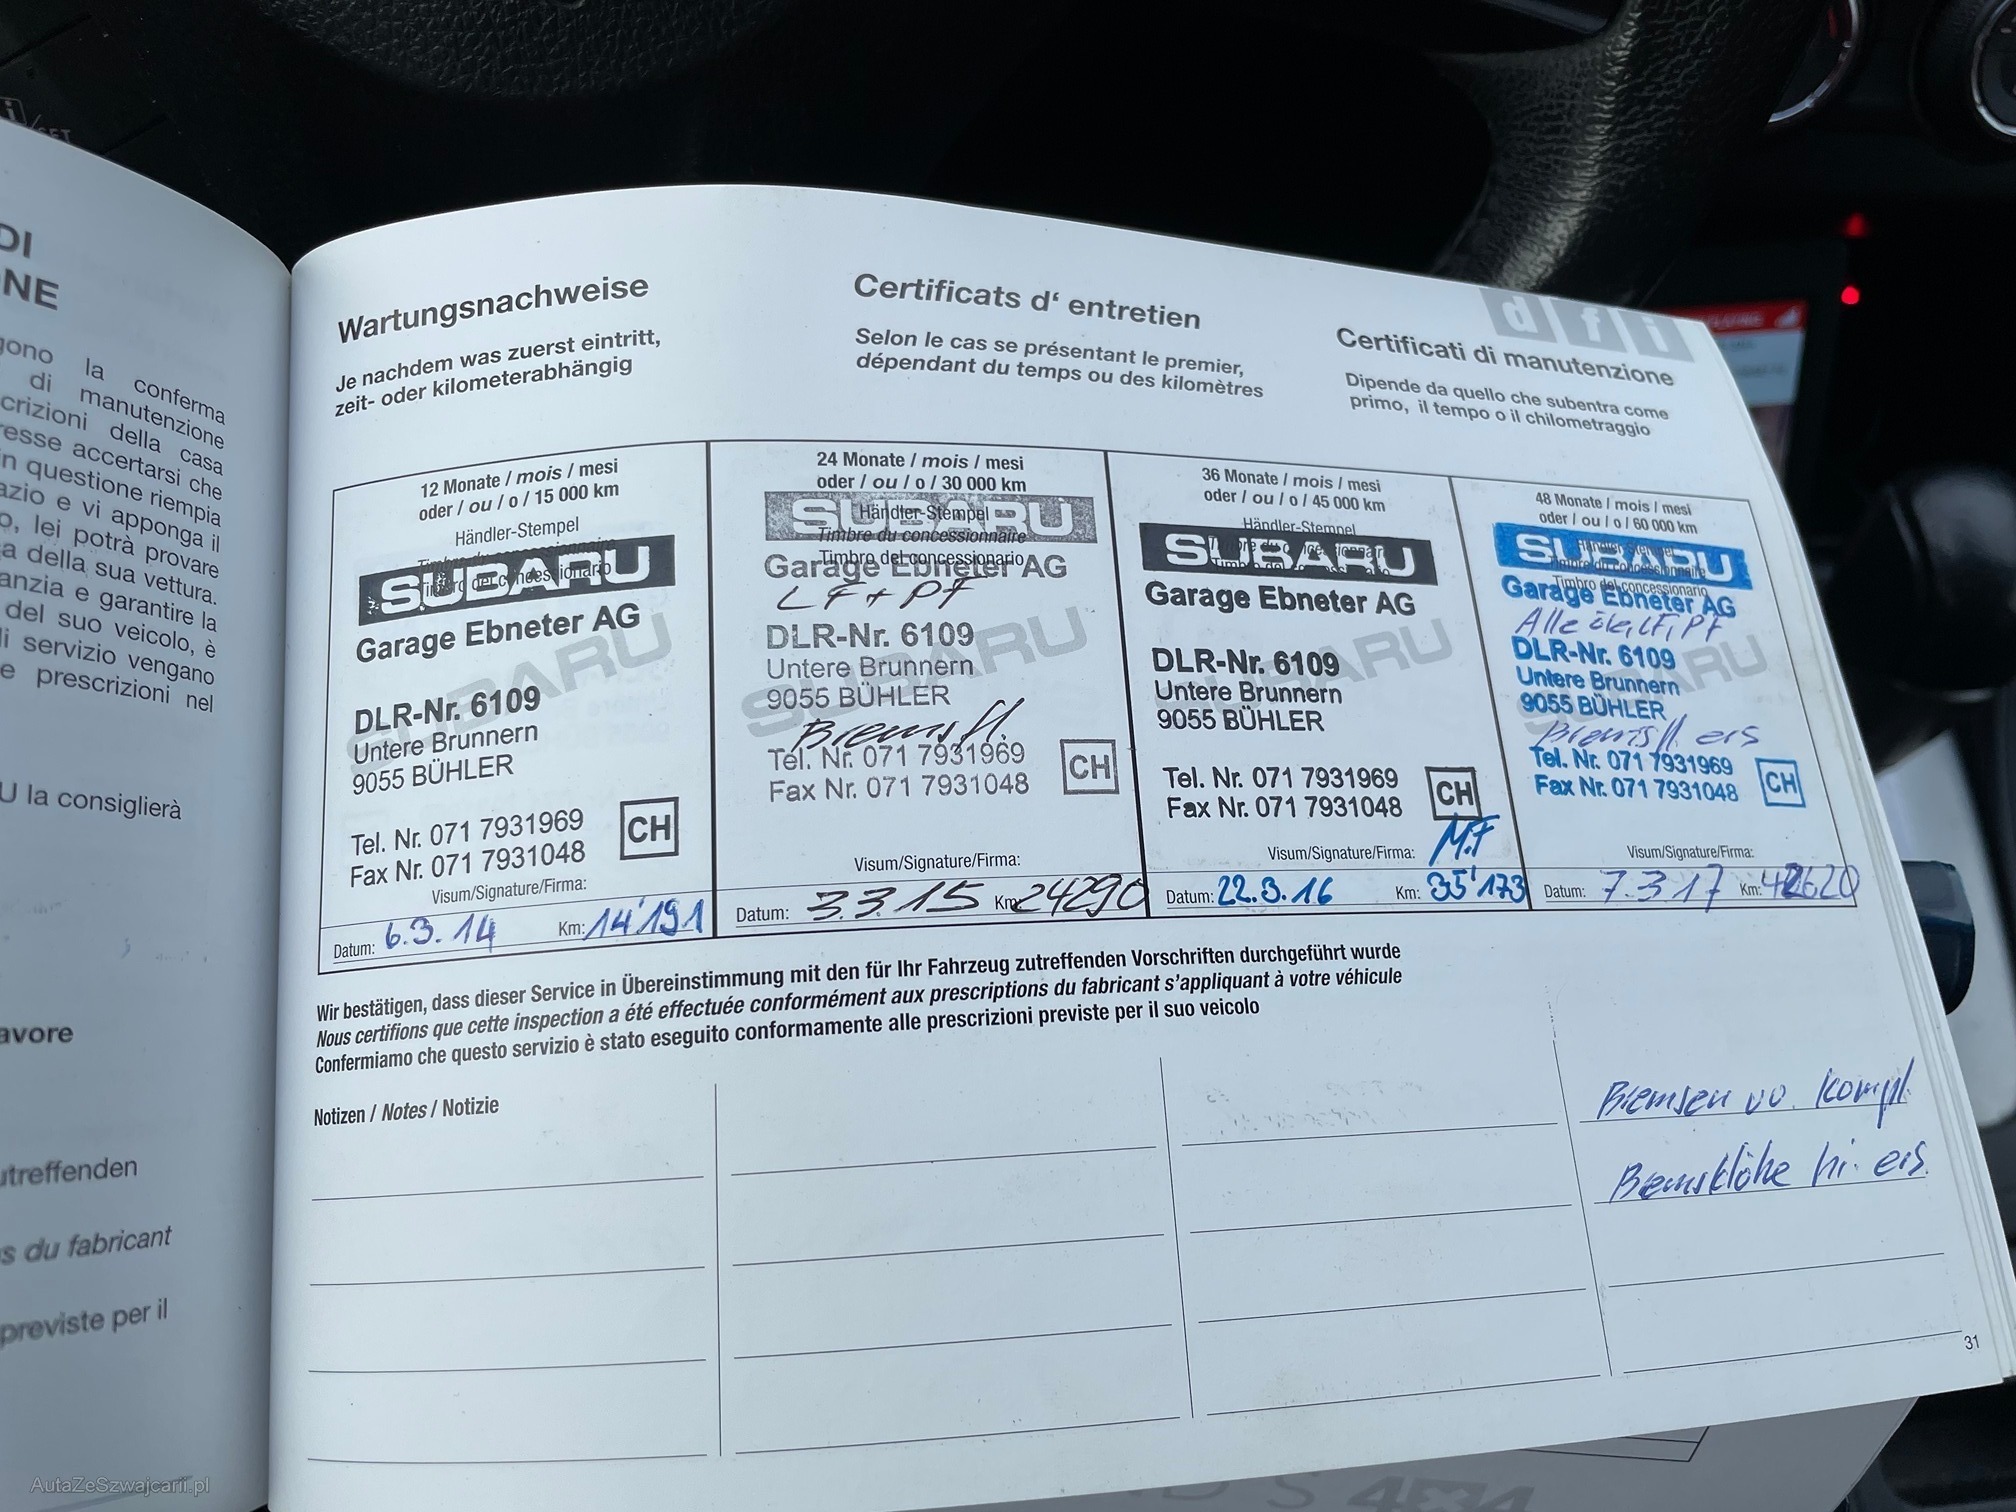 DI
NE
gono la conferma
di manutenzione
crizioni della casa
resse accertarsi che
in questione riempia
azio e vi apponga il
o, lei potrà provare
a della sua vettura.
anzia e garantire la
del suo veicolo, è
li servizio vengano
e prescrizioni nel
U la consiglierà
avore
utreffenden
s du fabricant
previste per il
dfi
Wartungsnachweise
Je nachdem was zuerst eintritt,
zeit- oder kilometerabhängig
Certificats d‘ entretien
Selon le cas se présentant le premier,
dépendant du temps ou des kilomètres
Certificati di manutenzione
Dipende da quello che subentra come
primo, il tempo o il chilometraggio
12 Monate / mois / mesi
oder / ou / o / 15 000 km
Händler-Stempel
Timbre du concessionnaire
Timbro del concessionario
SUBARU
Garage Ebneter AG
SUBARU
DLR-Nr. 6109
Untere Brunnern
9055 BÜHLER
Tel. Nr. 071 7931969
Fax Nr. 071 7931048
CH
Visum/Signature/Firma:
Datum: 6.3.14 Km: 14'191
24 Monate / mois / mesi
oder / ou / o / 30 000 km
Händler-Stempel
SUBARU
Timbre du concessionnaire
Timbro del concessionario
Garage Ebneter AG
LF + PF
DLR-Nr. 6109
SUBARU
Untere Brunnern
9055 BÜHLER
Bremsfl.
Tel. Nr. 071 7931969
Fax Nr. 071 7931048
CH
Visum/Signature/Firma:
Datum: 3.3.15 Km: 24290
36 Monate / mois / mesi
oder / ou / o / 45 000 km
Händler-Stempel
SUBARU
Garage Ebneter AG
SUBARU
DLR-Nr. 6109
Untere Brunnern
9055 BÜHLER
Tel. Nr. 071 7931969
Fax Nr. 071 7931048
CH
Visum/Signature/Firma: M.F
Datum: 22.3.16 Km: 35'173
48 Monate / mois / mesi
oder / ou / o / 60 000 km
SUBARU
Timbro del concessionario
Garage Ebneter AG
Alle öle, LF, PF
DLR-Nr. 6109
SUBARU
Untere Brunnern
9055 BÜHLER
Bremsfl. ers
Tel. Nr. 071 7931969
Fax Nr. 071 7931048
CH
Visum/Signature/Firma:
Datum: 7.3.17 Km: 42620
Wir bestätigen, dass dieser Service in Übereinstimmung mit den für Ihr Fahrzeug zutreffenden Vorschriften durchgeführt wurde
Nous certifions que cette inspection a été effectuée conformément aux prescriptions du fabricant s’appliquant à votre véhicule
Confermiamo che questo servizio è stato eseguito conformamente alle prescrizioni previste per il suo veicolo
Notizen / Notes / Notizie
Bremsen vo. kompl.
Bremsklötze hi. ers.
31
AutaZeSzwajcarii.pl